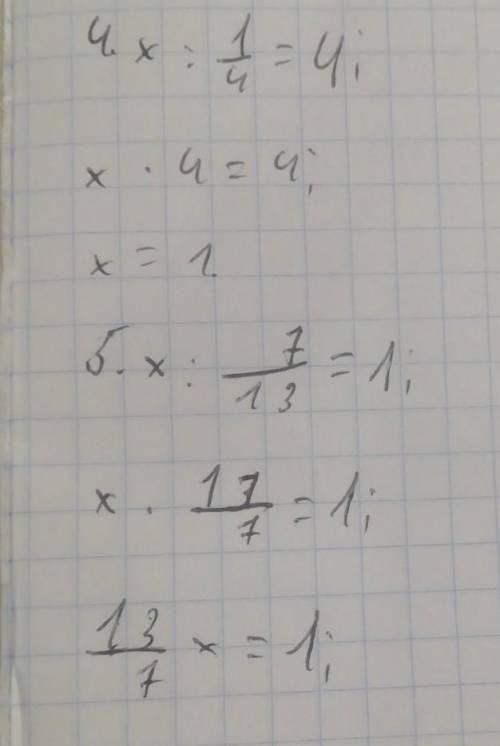 4. x : 1/4 = 4;
x · 4 = 4;
x = 1.
5. x : 7/13 = 1;
x · 17/7 = 1;
13/7 x = 1;